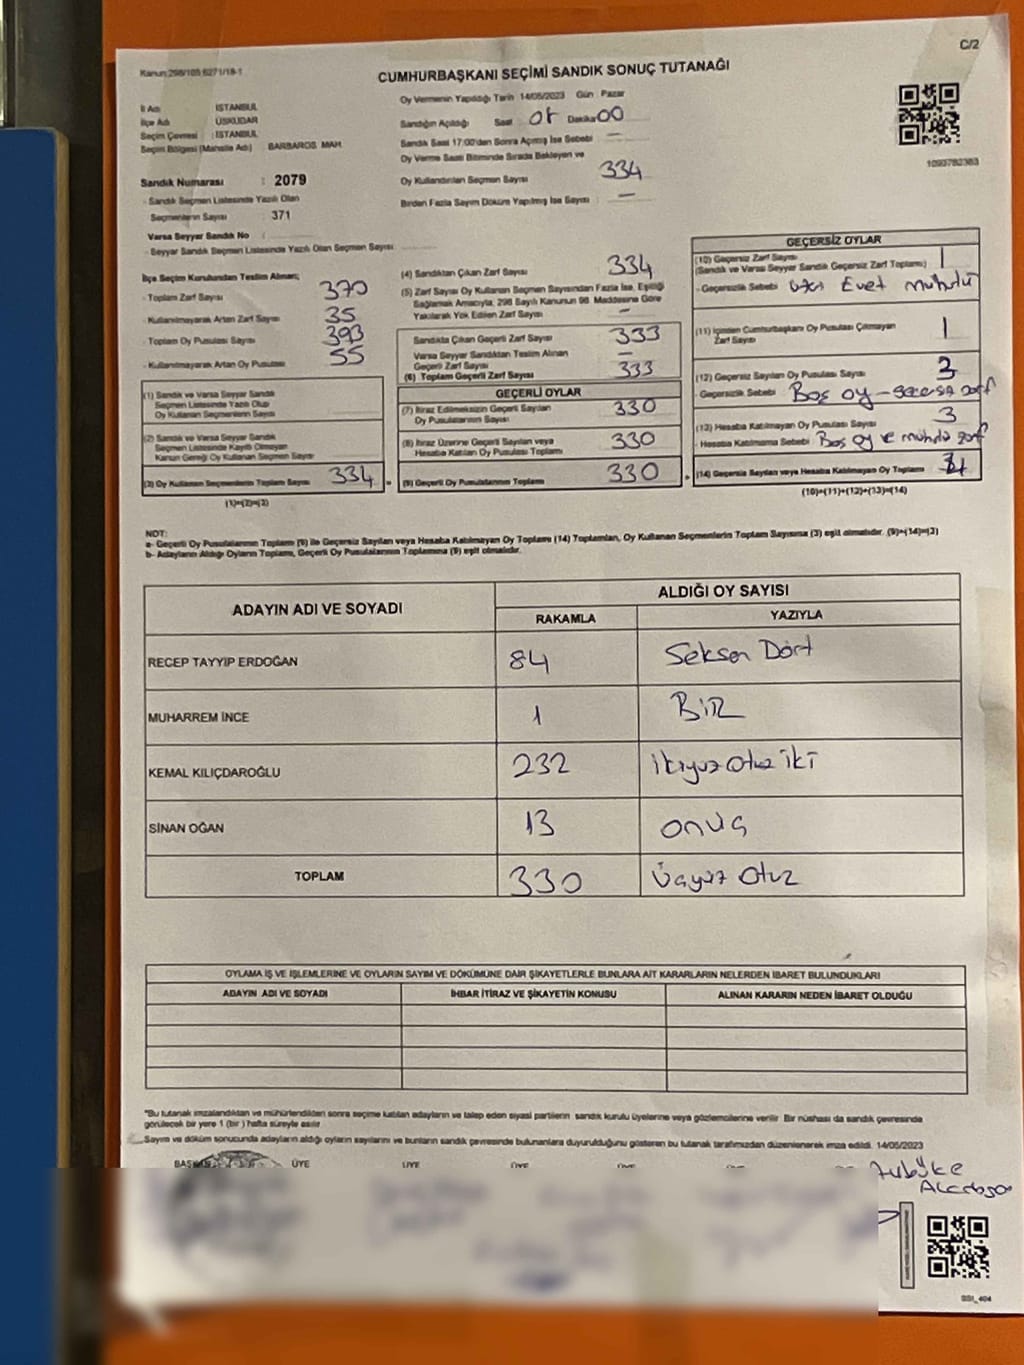 C/2
Kanun:298/105 6271/18-1
CUMHURBAŞKANI SEÇİMİ SANDIK SONUÇ TUTANAĞI
İl Adı : İSTANBUL
İlçe Adı : ÜSKÜDAR
Seçim Çevresi : İSTANBUL
Seçim Bölgesi (Mahalle Adı) : BARBAROS MAH.
Sandık Numarası : 2079
- Sandık Seçmen Listesinde Yazılı Olan
Seçmenlerin Sayısı : 371
Varsa Seyyar Sandık No :
- Seyyar Sandık Seçmen Listesinde Yazılı Olan Seçmen Sayısı:
Oy Vermenin Yapıldığı Tarih 14/05/2023 Gün : Pazar
Sandığın Açıldığı Saat : 08 Dakika: 00
Sandık Saat 17:00'den Sonra Açılmış İse Sebebi : —
Oy Verme Saati Bitiminde Sırada Bekleyen ve
Oy Kullandırılan Seçmen Sayısı : 334
Birden Fazla Sayım Döküm Yapılmış İse Sayısı : —
1093782363
İlçe Seçim Kurulundan Teslim Alınan;
- Toplam Zarf Sayısı : 370
- Kullanılmayarak Artan Zarf Sayısı : 35
- Toplam Oy Pusulası Sayısı : 393
- Kullanılmayarak Artan Oy Pusulası : 55
(1) Sandık ve Varsa Seyyar Sandık
Seçmen Listesinde Yazılı Olup
Oy Kullanan Seçmenlerin Sayısı :
(2) Sandık ve Varsa Seyyar Sandık
Seçmen Listesinde Kayıtlı Olmayan
Kanun Gereği Oy Kullanan Seçmen Sayısı :
(3) Oy Kullanan Seçmenlerin Toplam Sayısı : 334
(1)+(2)=(3)
(4) Sandıktan Çıkan Zarf Sayısı : 334
(5) Zarf Sayısı Oy Kullanan Seçmen Sayısından Fazla İse, Eşitliği
Sağlamak Amacıyla, 298 Sayılı Kanunun 98. Maddesine Göre
Yakılarak Yok Edilen Zarf Sayısı : —
Sandıkta Çıkan Geçerli Zarf Sayısı : 333
Varsa Seyyar Sandıktan Teslim Alınan
Geçerli Zarf Sayısı : —
(6) Toplam Geçerli Zarf Sayısı : 333
GEÇERLİ OYLAR
(7) İtiraz Edilmeksizin Geçerli Sayılan
Oy Pusulasının Sayısı : 330
(8) İtiraz Üzerine Geçerli Sayılan veya
Hesaba Katılan Oy Pusulası Toplamı : 330
(9) Geçerli Oy Pusulalarının Toplamı : 330
GEÇERSİZ OYLAR
(10) Geçersiz Zarf Sayısı : 1
(Sandık ve Varsa Seyyar Sandık Geçersiz Zarf Toplamı)
- Geçersizlik Sebebi : Evet mühürlü
(11) İçinden Cumhurbaşkanı Oy Pusulası Çıkmayan
Zarf Sayısı : 1
(12) Geçersiz Sayılan Oy Pusulası Sayısı : 3
- Geçersizlik Sebebi : Boş oy –
(13) Hesaba Katılmayan Oy Pusulası Sayısı : 3
- Hesaba Katılmama Sebebi : Boş oy
(14) Geçersiz Sayılan veya Hesaba Katılmayan Oy Toplamı :
(10)+(11)+(12)+(13)=(14)
NOT:
a- Geçerli Oy Pusulalarının Toplamı (9) ile Geçersiz Sayılan veya Hesaba Katılmayan Oy Toplamı (14) Toplamları, Oy Kullanan Seçmenlerin Toplam Sayısına (3) eşit olmalıdır. (9)+(14)=(3)
b- Adayların Aldığı Oyların Toplamı, Geçerli Oy Pusulalarının Toplamına (9) eşit olmalıdır.
ADAYIN ADI VE SOYADI
ALDIĞI OY SAYISI
RAKAMLA YAZIYLA
RECEP TAYYİP ERDOĞAN 84 Seksen Dört
MUHARREM İNCE 1 BİR
KEMAL KILIÇDAROĞLU 232 ikiyuz otuz iki
SİNAN OĞAN 13 onuç
TOPLAM 330 Üçyüz Otuz
OYLAMA İŞ VE İŞLEMLERİNE VE OYLARIN SAYIM VE DÖKÜMÜNE DAİR ŞİKAYETLERLE BUNLARA AİT KARARLARIN NELERDEN İBARET BULUNDUKLARI
ADAYIN ADI VE SOYADI İHBAR İTİRAZ VE ŞİKAYETİN KONUSU ALINAN KARARIN NEDEN İBARET OLDUĞU
*Bu tutanak imzalandıktan ve mühürlendikten sonra seçime katılan adayların ve talep eden siyasi partilerin sandık kurulu üyelerine veya gözlemcilerine verilir. Bir nüshası da sandık çevresinde
görülecek bir yere 1 (bir ) hafta süreyle asılır.
Sayım ve döküm sonucunda adayların aldığı oyların sayılarını ve bunların sandık çevresinde bulunanlara duyurulduğunu gösteren bu tutanak tarafımızdan düzenlenerek imza edildi. 14/05/2023
ÜYE ÜYE ÜYE